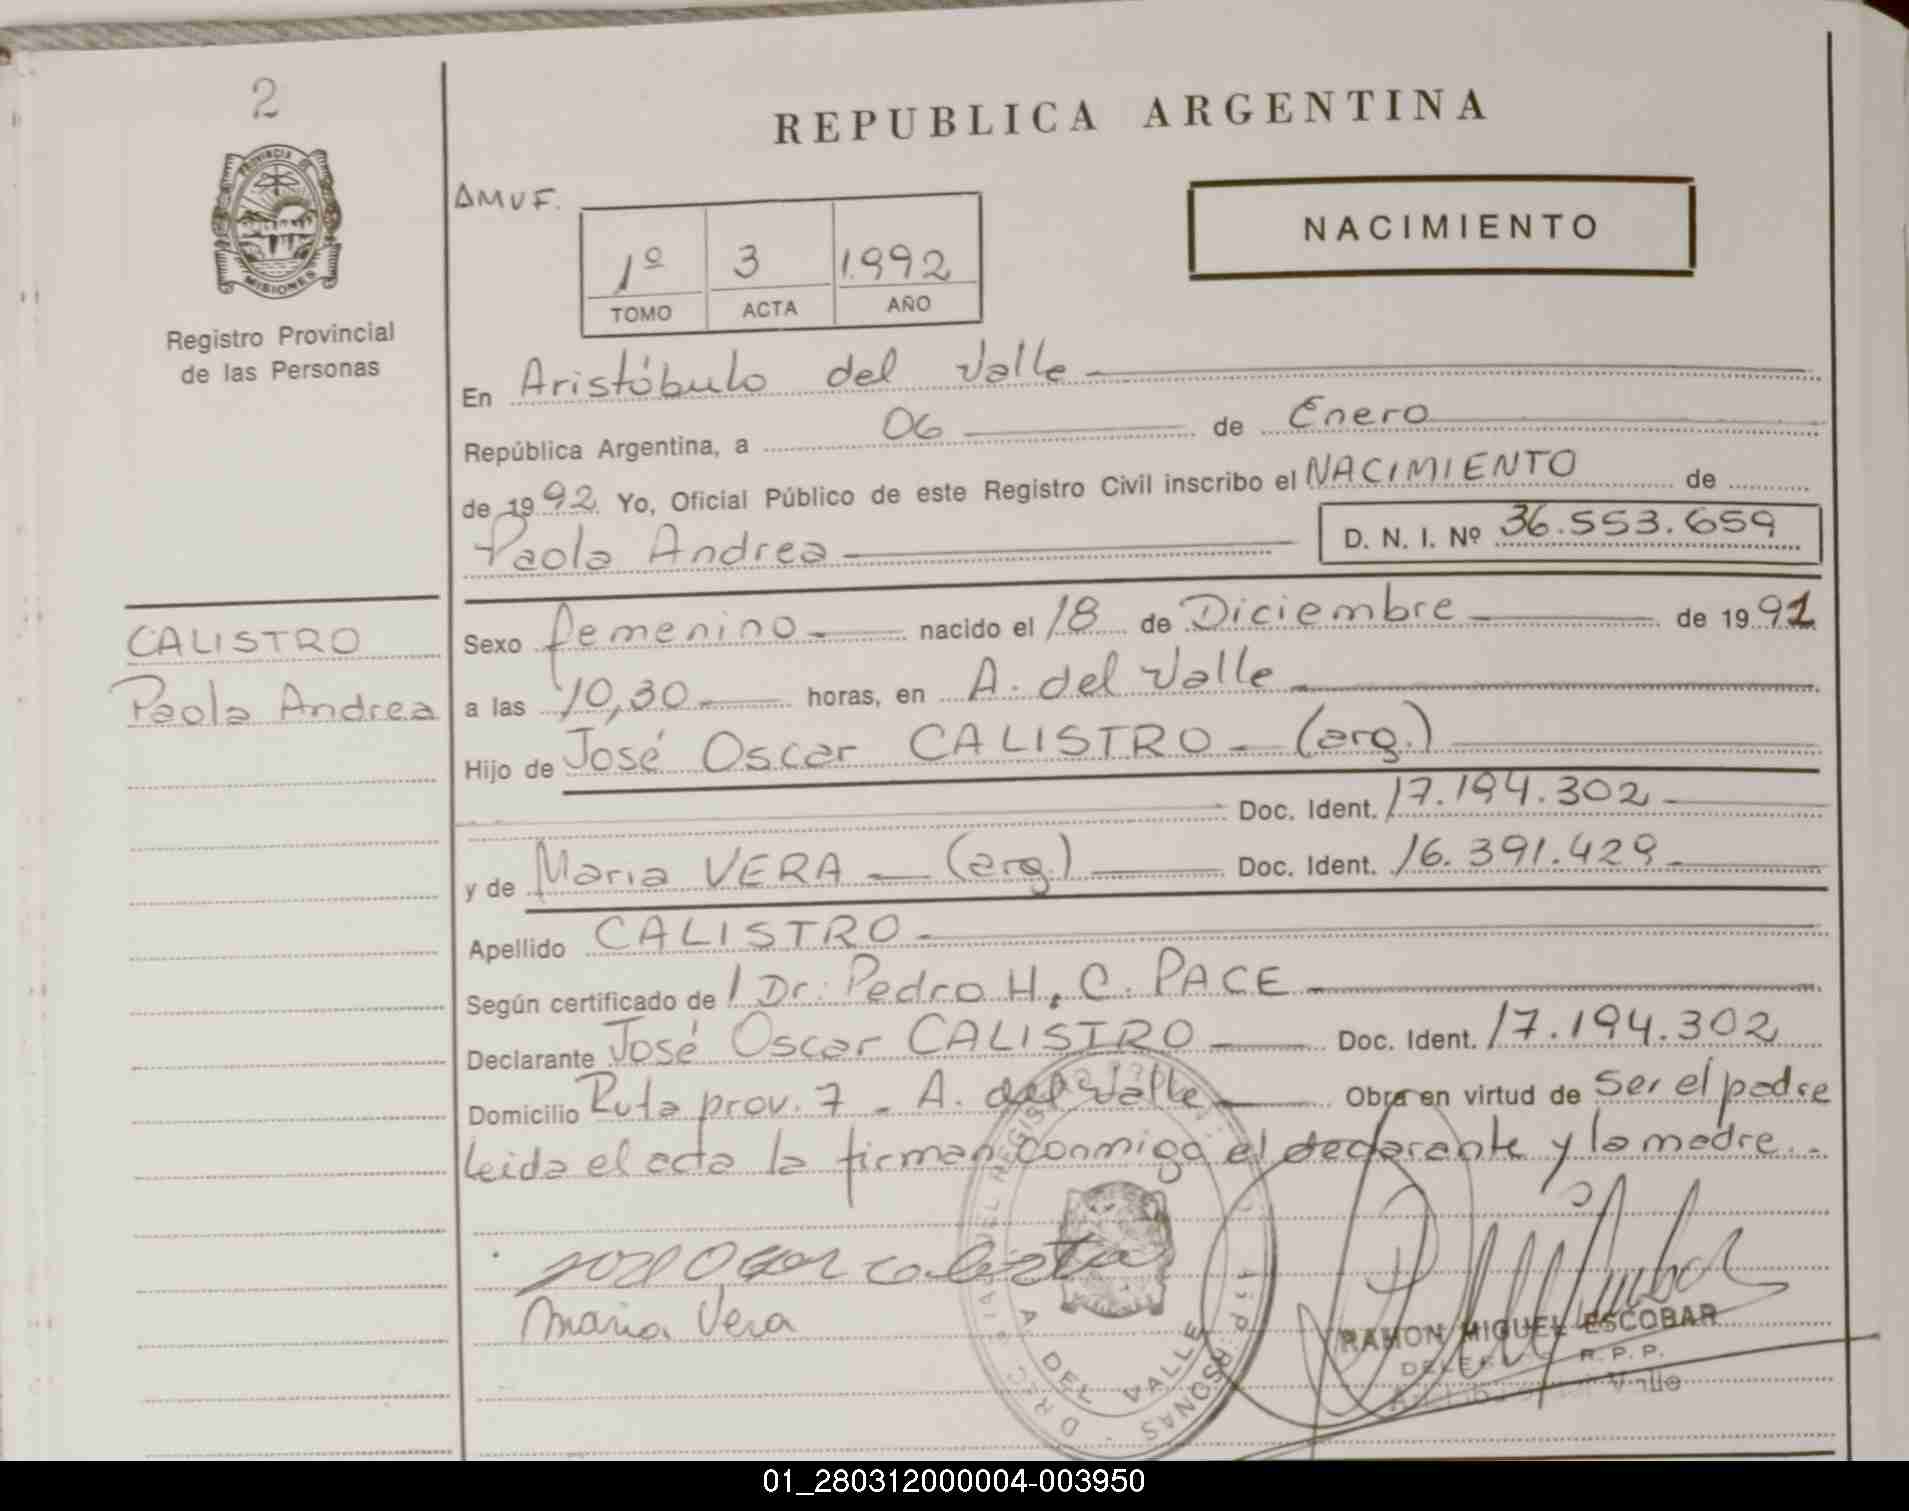 2
PROVINCIA DE
MISIONES
Registro Provincial
de las Personas
CALISTRO
Paola Andrea
REPUBLICA ARGENTINA
AMVF.
1º 3 1.992
TOMO ACTA AÑO
NACIMIENTO
En Aristóbulo del Valle
República Argentina, a 06 de Enero
de 1992 Yo, Oficial Público de este Registro Civil inscribo el NACIMIENTO de
Paola Andrea D. N. I. Nº 36.553.659
Sexo femenino nacido el 18 de Diciembre de 1991
a las 10,30 horas, en A. del Valle
Hijo de José Oscar CALISTRO - (arg.)
Doc. Ident. 17.194.302
y de Maria VERA - (arg.) Doc. Ident. 16.391.429
Apellido CALISTRO
Según certificado de Dr. Pedro H. C. PACE
Declarante José Oscar CALISTRO Doc. Ident. 17.194.302
Domicilio Ruta prov. 7 - A. del Valle Obra en virtud de Ser el padre
Leida el acta la firman conmigo el declarante y la madre..
Maria Vera
A. DEL VALLE
RAMON MIGUEL ESCOBAR
R. P. P.
Valle
01_280312000004-003950